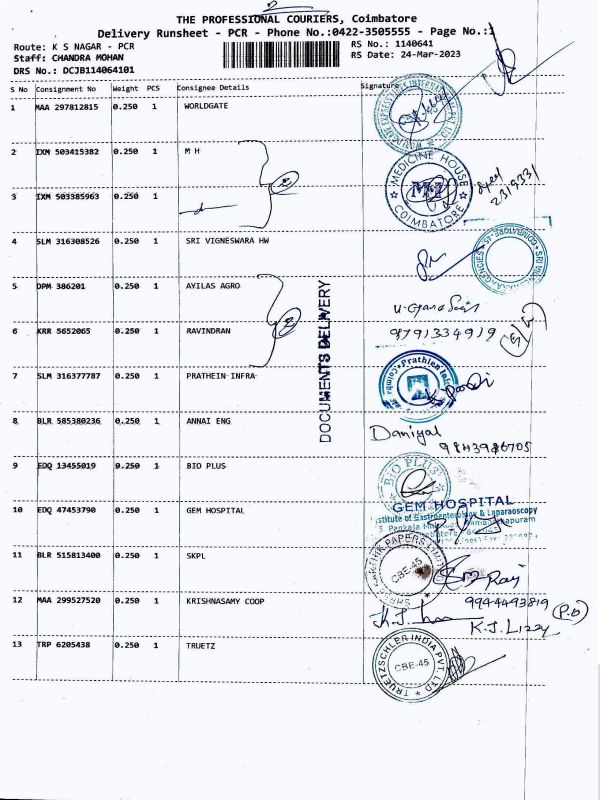 THE PROFESSIONAL COURIERS, Coimbatore
Delivery Runsheet - PCR - Phone No.:0422-3505555 - Page No.:1
Route: K S NAGAR - PCR
RS No.: 1140641
Staff: CHANDRA MOHAN
RS Date: 24-Mar-2023
DRS No.: DCJB114064101
S No Consignment No Weight PCS Consignee Details Signature
1 MAA 297812815 0.250 1 WORLDGATE
2 IXM 503415382 0.250 1 M H
MEDICINE HOUSE
MH
COIMBATORE
2319331
3 IXM 503385963 0.250 1
4 SLM 316308526 0.250 1 SRI VIGNESWARA HW
5 DPM 386201 0.250 1 AYILAS AGRO
DOCUMENTS DELIVERY
6 KRR 5652065 0.250 1 RAVINDRAN
9791334919
7 SLM 316377787 0.250 1 PRATHEIN INFRA
8 BLR 585380236 0.250 1 ANNAI ENG
Daniyal
9843986705
9 EDQ 13455019 0.250 1 BIO PLUS
BIO PLUS
10 EDQ 47453790 0.250 1 GEM HOSPITAL
GEM HOSPITAL
Institute of Gastroenterology & Laparaoscopy
11 BLR 515813400 0.250 1 SKPL
CBE-45
12 MAA 299527520 0.250 1 KRISHNASAMY COOP
9944493819
K.J. Lizzy
13 TRP 6205438 0.250 1 TRUETZ
TRUETZSCHLER INDIA PVT. LTD
CBE-45